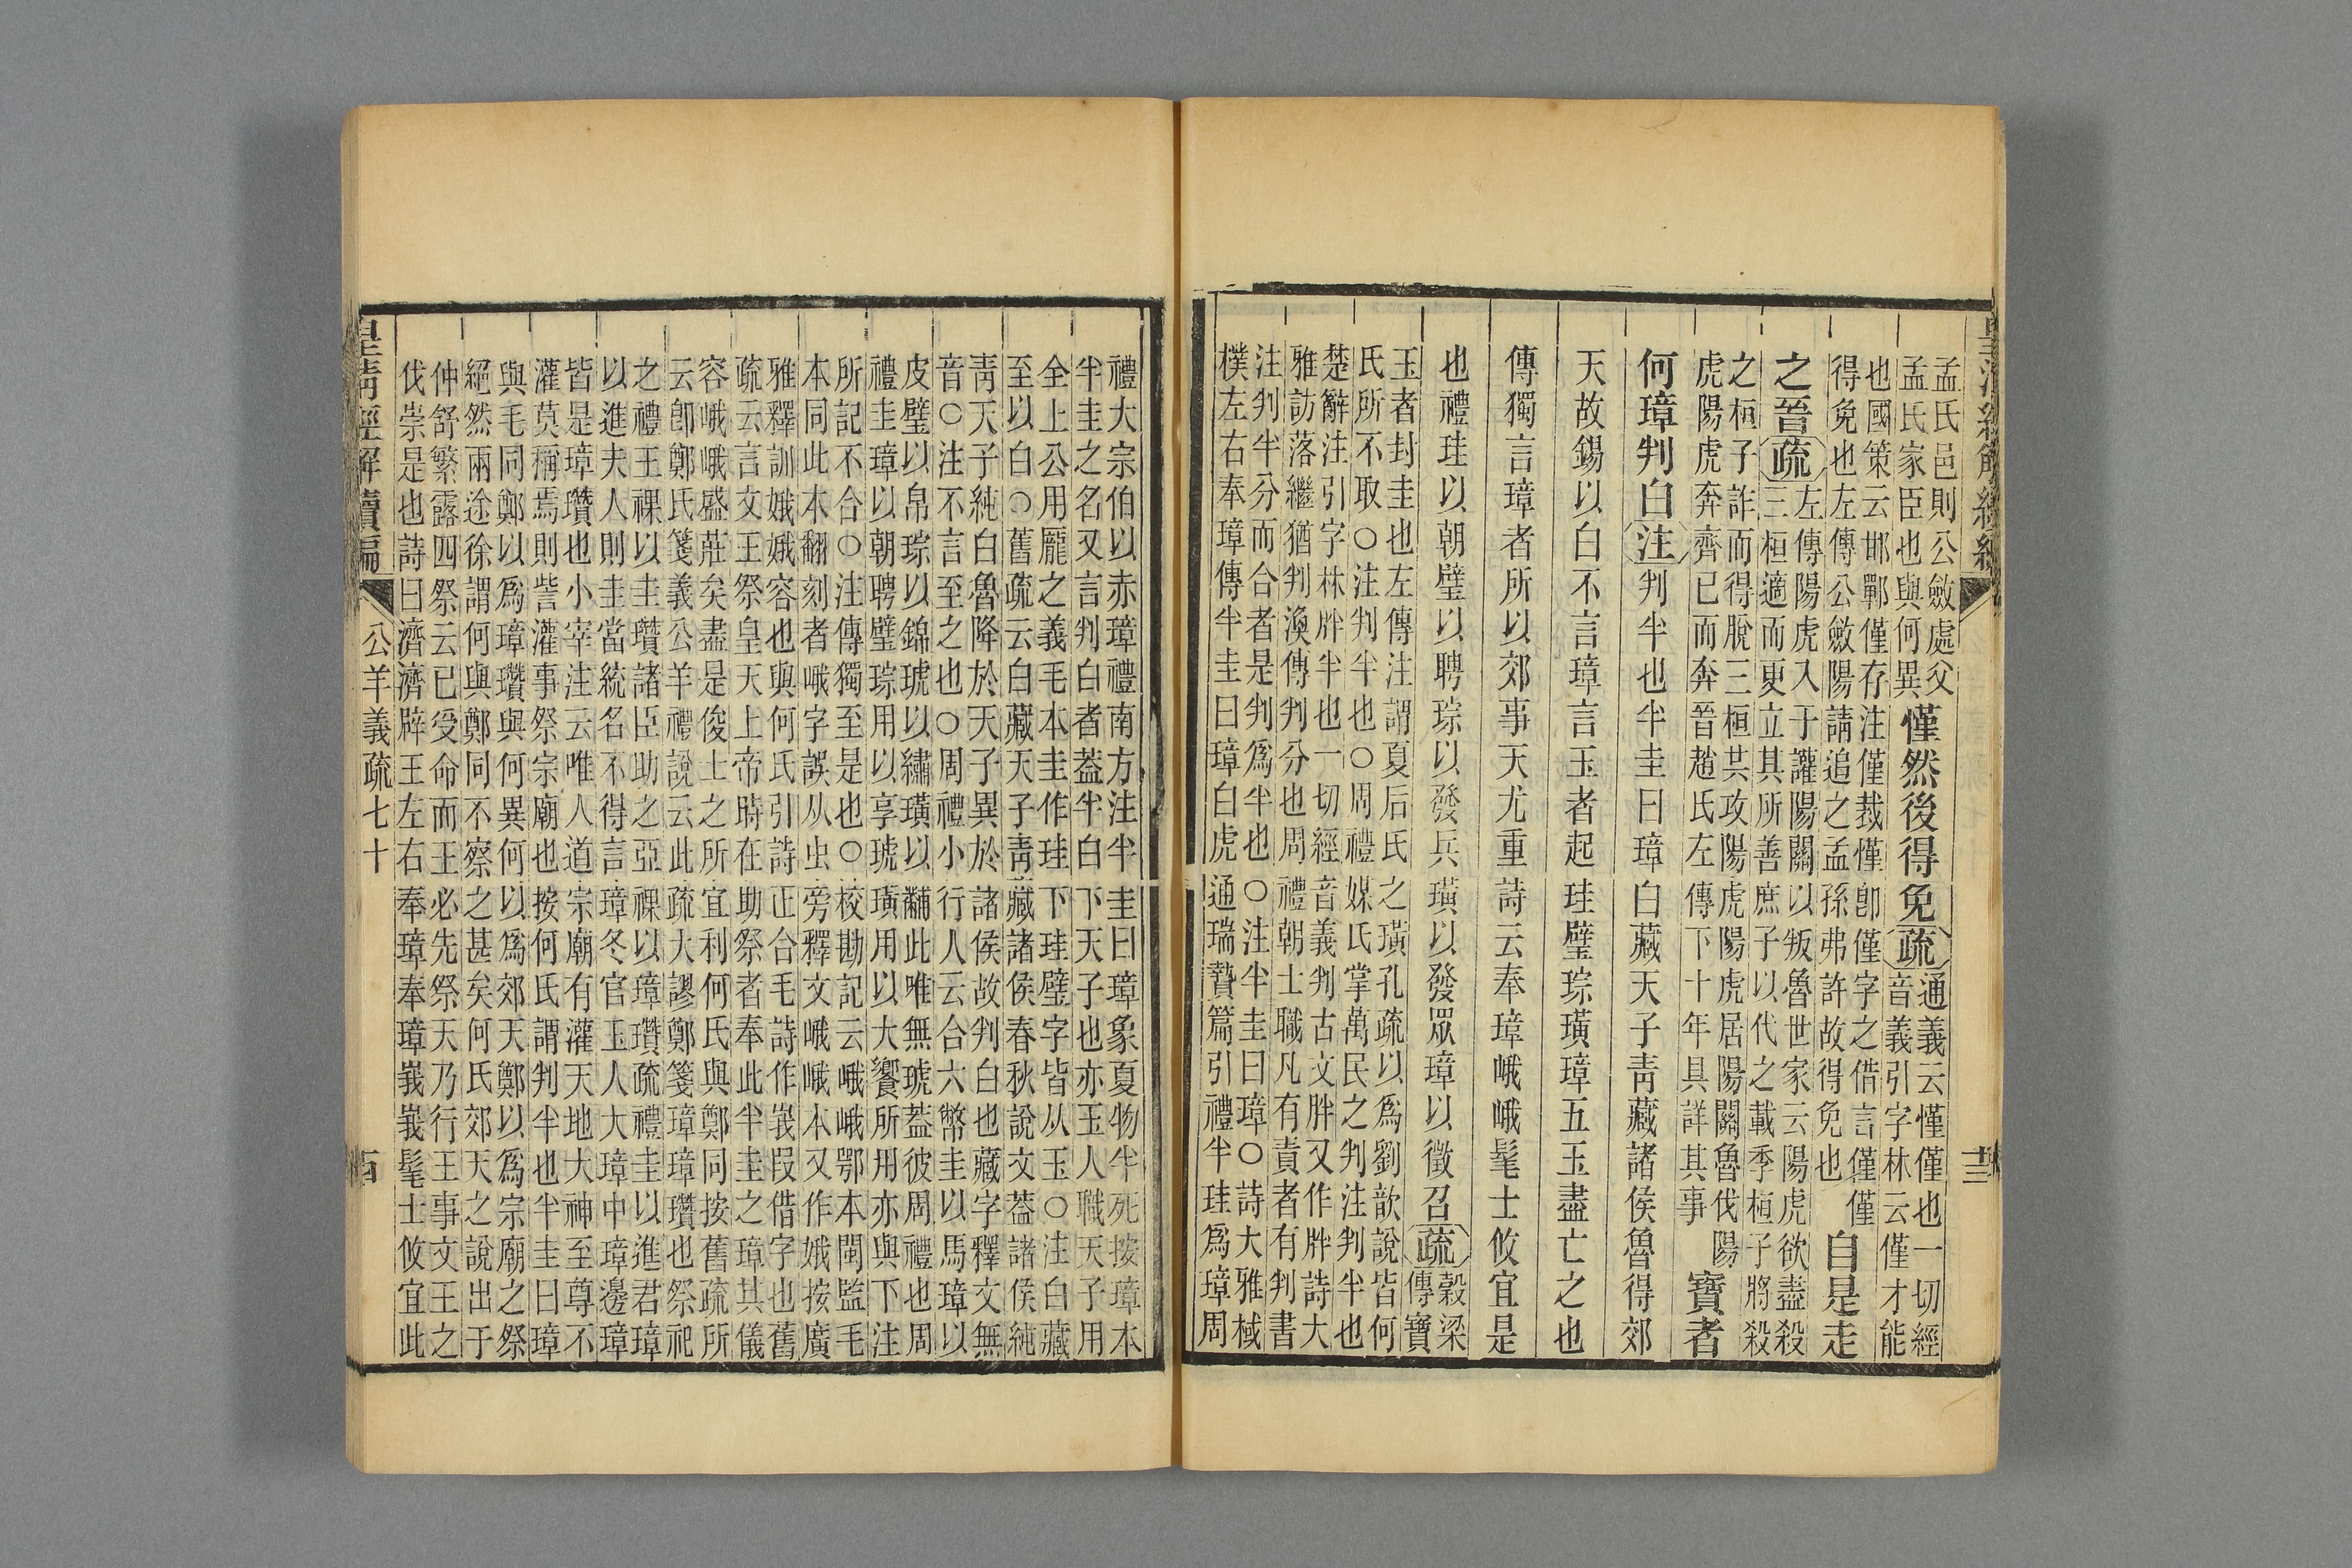 孟氏邑則公斂處父
孟氏家臣也與何異
慬然後得免疏
通義云慬僅也一切經
音義引字林云僅才能
也國策云邯鄲僅存注僅裁慬卽僅字之借言僅僅
得免也左傳公斂陽請追之孟孫弗許故得免也
自是走
之晉疏
左傳陽虎入于讙陽關以叛魯世家云陽虎欲盡殺
三桓適而更立其所善庶子以代之載季桓子將殺
之桓子詐而得脫三桓共攻陽虎陽虎居陽關魯伐陽
虎陽虎奔齊已而奔晉趙氏左傳下十年具詳其事
寶者
何璋判白注判半也半圭曰璋白藏天子青藏諸侯魯得郊
天故錫以白不言璋言玉者起珪璧琮璜璋五玉盡亡之也
傳獨言璋者所以郊事天尤重詩云奉璋峨峨髦士攸宜是
也禮珪以朝璧以聘琮以發兵璜以發眾璋以徵召疏
穀梁
傳寶
玉者封圭也左傳注謂夏后氏之璜孔疏以爲劉歆說皆何
氏所不取○注判半也○周禮媒氏掌萬民之判注判半也
楚辭注引字林牉半也一切經音義判古文胖又作牉詩大
雅訪落繼猶判渙傳判分也周禮朝士職凡有責者有判書
注判半分而合者是判爲半也○注半圭曰璋○詩大雅棫
樸左右奉璋傳半圭曰璋白虎通瑞贄篇引禮半珪爲璋周
禮大宗伯以赤璋禮南方注半圭曰璋象夏物半死按璋本
半圭之名又言判白者蓋半白下天子也亦玉人職天子用
全上公用龍之義毛本圭作珪下珪璧字皆从玉○注白藏
至以白○舊疏云白藏天子青藏諸侯春秋說文蓋諸侯純
青天子純白魯降於天子異於諸侯故判白也藏字釋文無
音○注不言至之也○周禮小行人云合六幣圭以馬璋以
皮璧以帛琮以錦琥以繡璜以黼此唯無琥蓋彼周禮也周
禮圭璋以朝聘璧琮用以享琥璜用以大饗所用亦與下注
所記不合○注傳獨至是也○校勘記云峨峨鄂本閩監毛
本同此本翻刻者峨字誤从虫旁釋文峨峨本又作娥按廣
雅釋訓娥娥容也與何氏引詩正合毛詩作峩叚借字也舊
疏云言文王祭皇天上帝時在助祭者奉此半圭之璋其儀
容峨峨盛莊矣盡是俊士之所宜利何氏與鄭同按舊疏所
云卽鄭氏箋義公羊禮說云此疏大謬鄭箋璋璋瓚也祭祀
之禮王祼以圭瓚諸臣助之亞祼以璋瓚疏禮圭以進君璋
以進夫人則圭當統名不得言璋冬官玉人大璋中璋邊璋
皆是璋瓚也小宰注云唯人道宗廟有灌天地大神至尊不
灌莫稱焉則訾灌事祭宗廟也按何氏謂判半也半圭曰璋
與毛同鄭以爲璋瓚與何異何以爲郊天鄭以爲宗廟之祭
絕然兩途徐謂何與鄭同不察之甚矣何氏郊天之說出于
仲舒繁露四祭云已受命而王必先祭天乃行王事文王之
伐崇是也詩曰濟濟辟王左右奉璋奉璋峩峩髦士攸宜此
皇清經解續編 公羊義疏七十